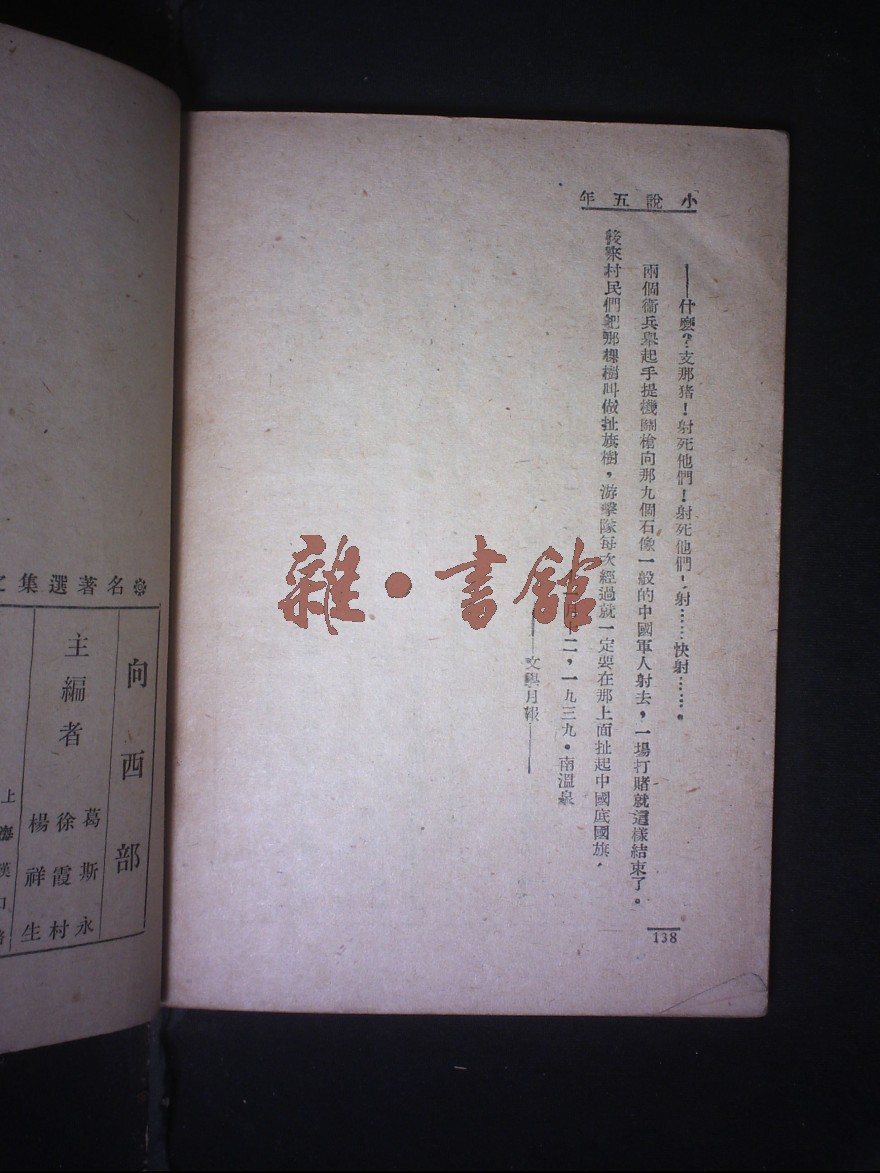 小說五年
——什麼？支那猪！射死他們！射死他們！射……快射……。
兩個衞兵舉起手提機關槍向那九個石像一般的中國軍人射去，一場打賭就這樣結束了。
後來村民們把那棵樹叫做扯旗樹，游擊隊每次經過就一定要在那上面扯起中國底國旗，
十二，一九三九。南溫泉
——文學月報——
138
雜·書館
名著選集之
向西部
主編者
葛斯永
徐霞村
楊祥生
上海漢口路